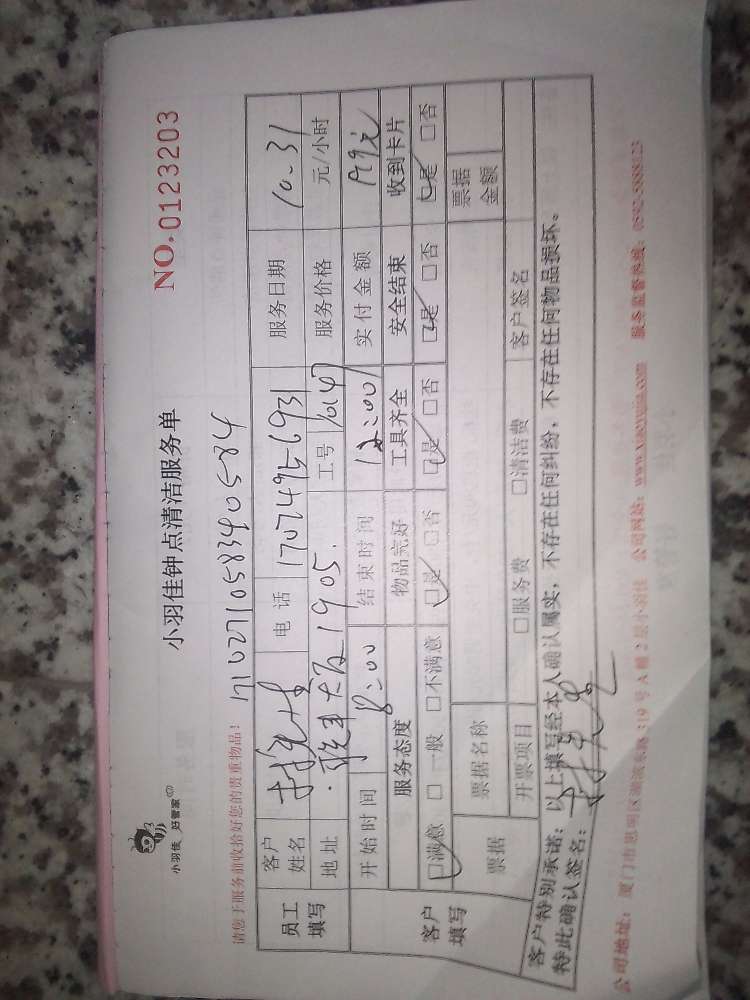 小羽佳 好管家
小羽佳钟点清洁服务单
NO.0123203
请您于服务前收拾好您的贵重物品！
171027105834905 84
员工填写
客户姓名 林先生 电话 17074956931 服务日期 10.31
地址 大厦1905. 工号 服务价格 元/小时
开始时间 8:00 结束时间 12:00 实付金额
客户填写
服务态度 物品完好 工具齐全 安全结束 收到卡片
□满意 □一般 □不满意 □是 □否 □是 □否 □是 □否 □是 □否
票据 票据名称 票据金额
开票项目 □服务费 □清洁费 客户签名
客户特别承诺：以上填写经本人确认属实，不存在任何纠纷，不存在任何物品损坏。
特此确认签名：
公司地址：厦门市思明区湖滨东路319号A幢2层小羽佳 公司网站：www.xiaoyujia.com 服务监督热线：0592-5888123